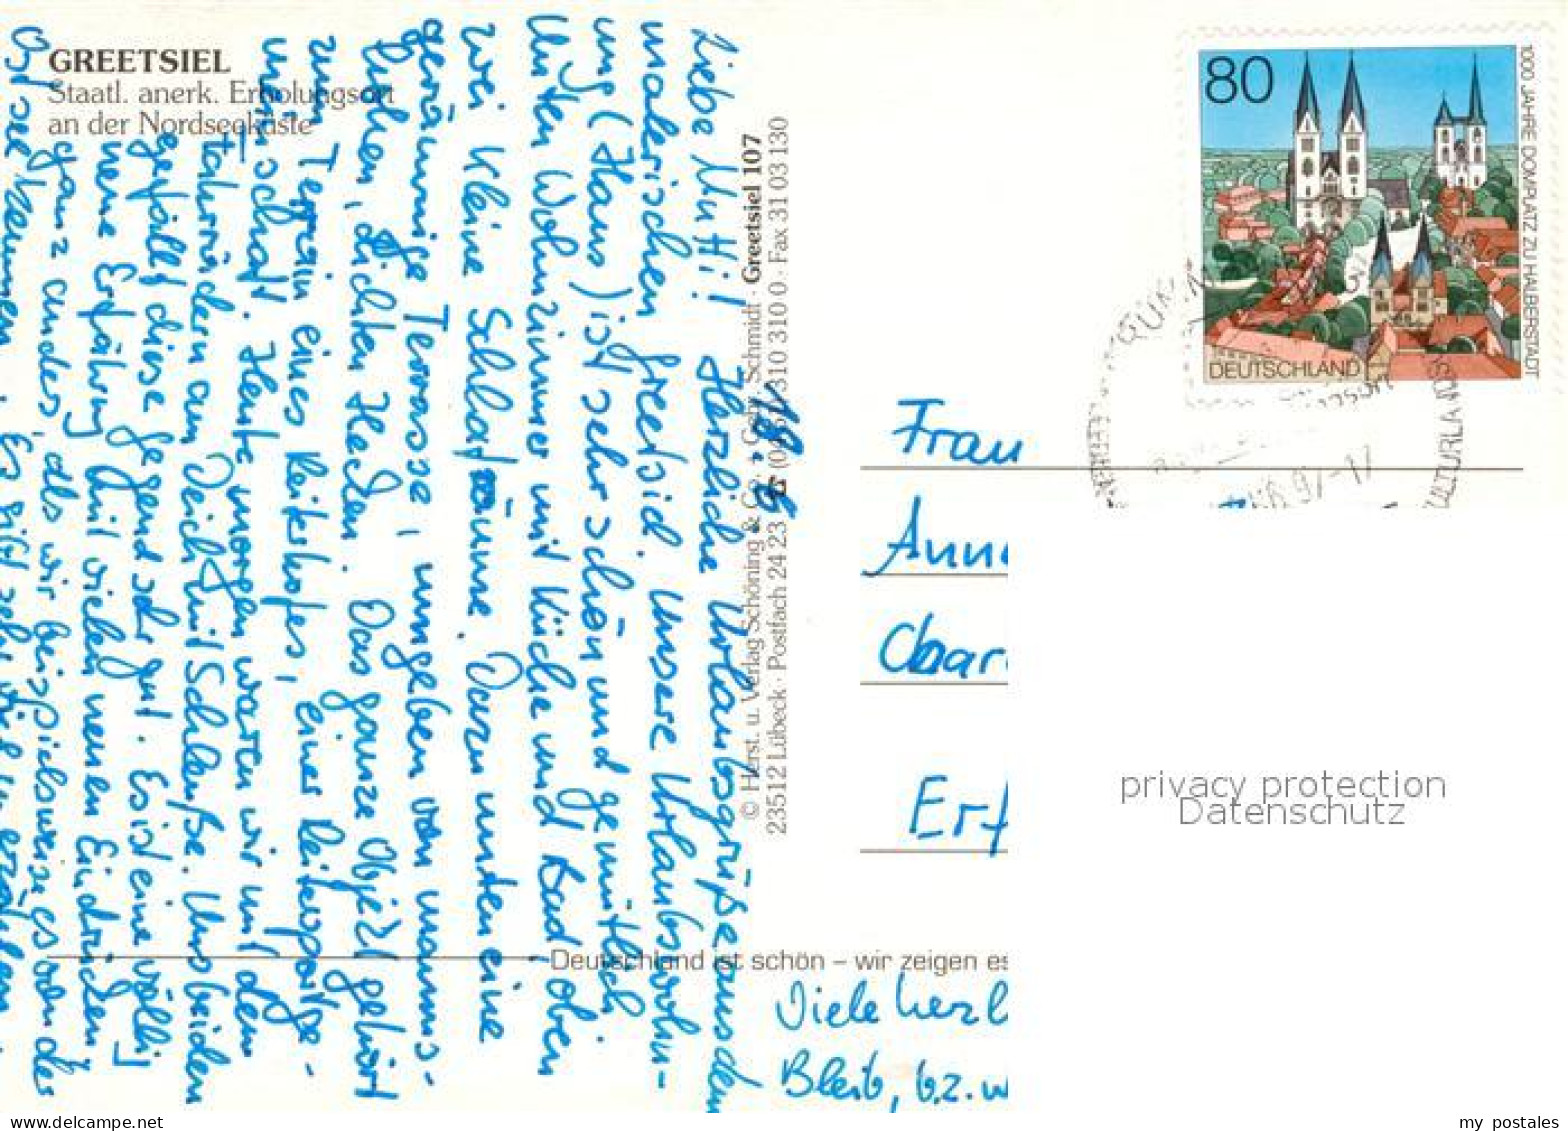 GREETSIEL
Staatl. anerk. Erholungsort
an der Nordseeküste
18. 6.
Liebe Mutti! Herzliche Urlaubsgrüße aus dem
malerischen Greetsiel. Unsere Urlaubswohn-
ung (Haus) ist sehr schön und gemütlich
Unten Wohnzimmer mit Küche und Bad, oben
zwei kleine Schlafräume. Dazu unten eine
geräumige Terrasse, umgeben von manns-
hohen, dichten Hecken. Das ganze Objekt gehört
zum Terrain eines Reiterhofes, einer Reitersportge-
meinschaft. Heute morgen waren wir mit den
Fahrrädern am Deich mit Schleuße. Uns beiden
gefällt diese Gegend sehr gut. Es ist eine völlig
neue Erfahrung mit vielen neuen Eindrücken,
ganz anders, als wir beispielsweise es von der
Ostsee kennen. Es gibt sehr viel zu erzählen.
© Herst. u. Verlag Schöning & Co. + Gebr. Schmidt · Greetsiel 107
23512 Lübeck · Postfach 24 23 310 310 0 · Fax 31 03 130
80
1000 JAHRE DOMPLATZ ZU HALBERSTADT
DEUTSCHLAND
Frau
Ann
Erf
privacy protection
Datenschutz
Deutschland ist schön – wir zeigen es
Viele herzl
Bleib, b.z.w
my postales